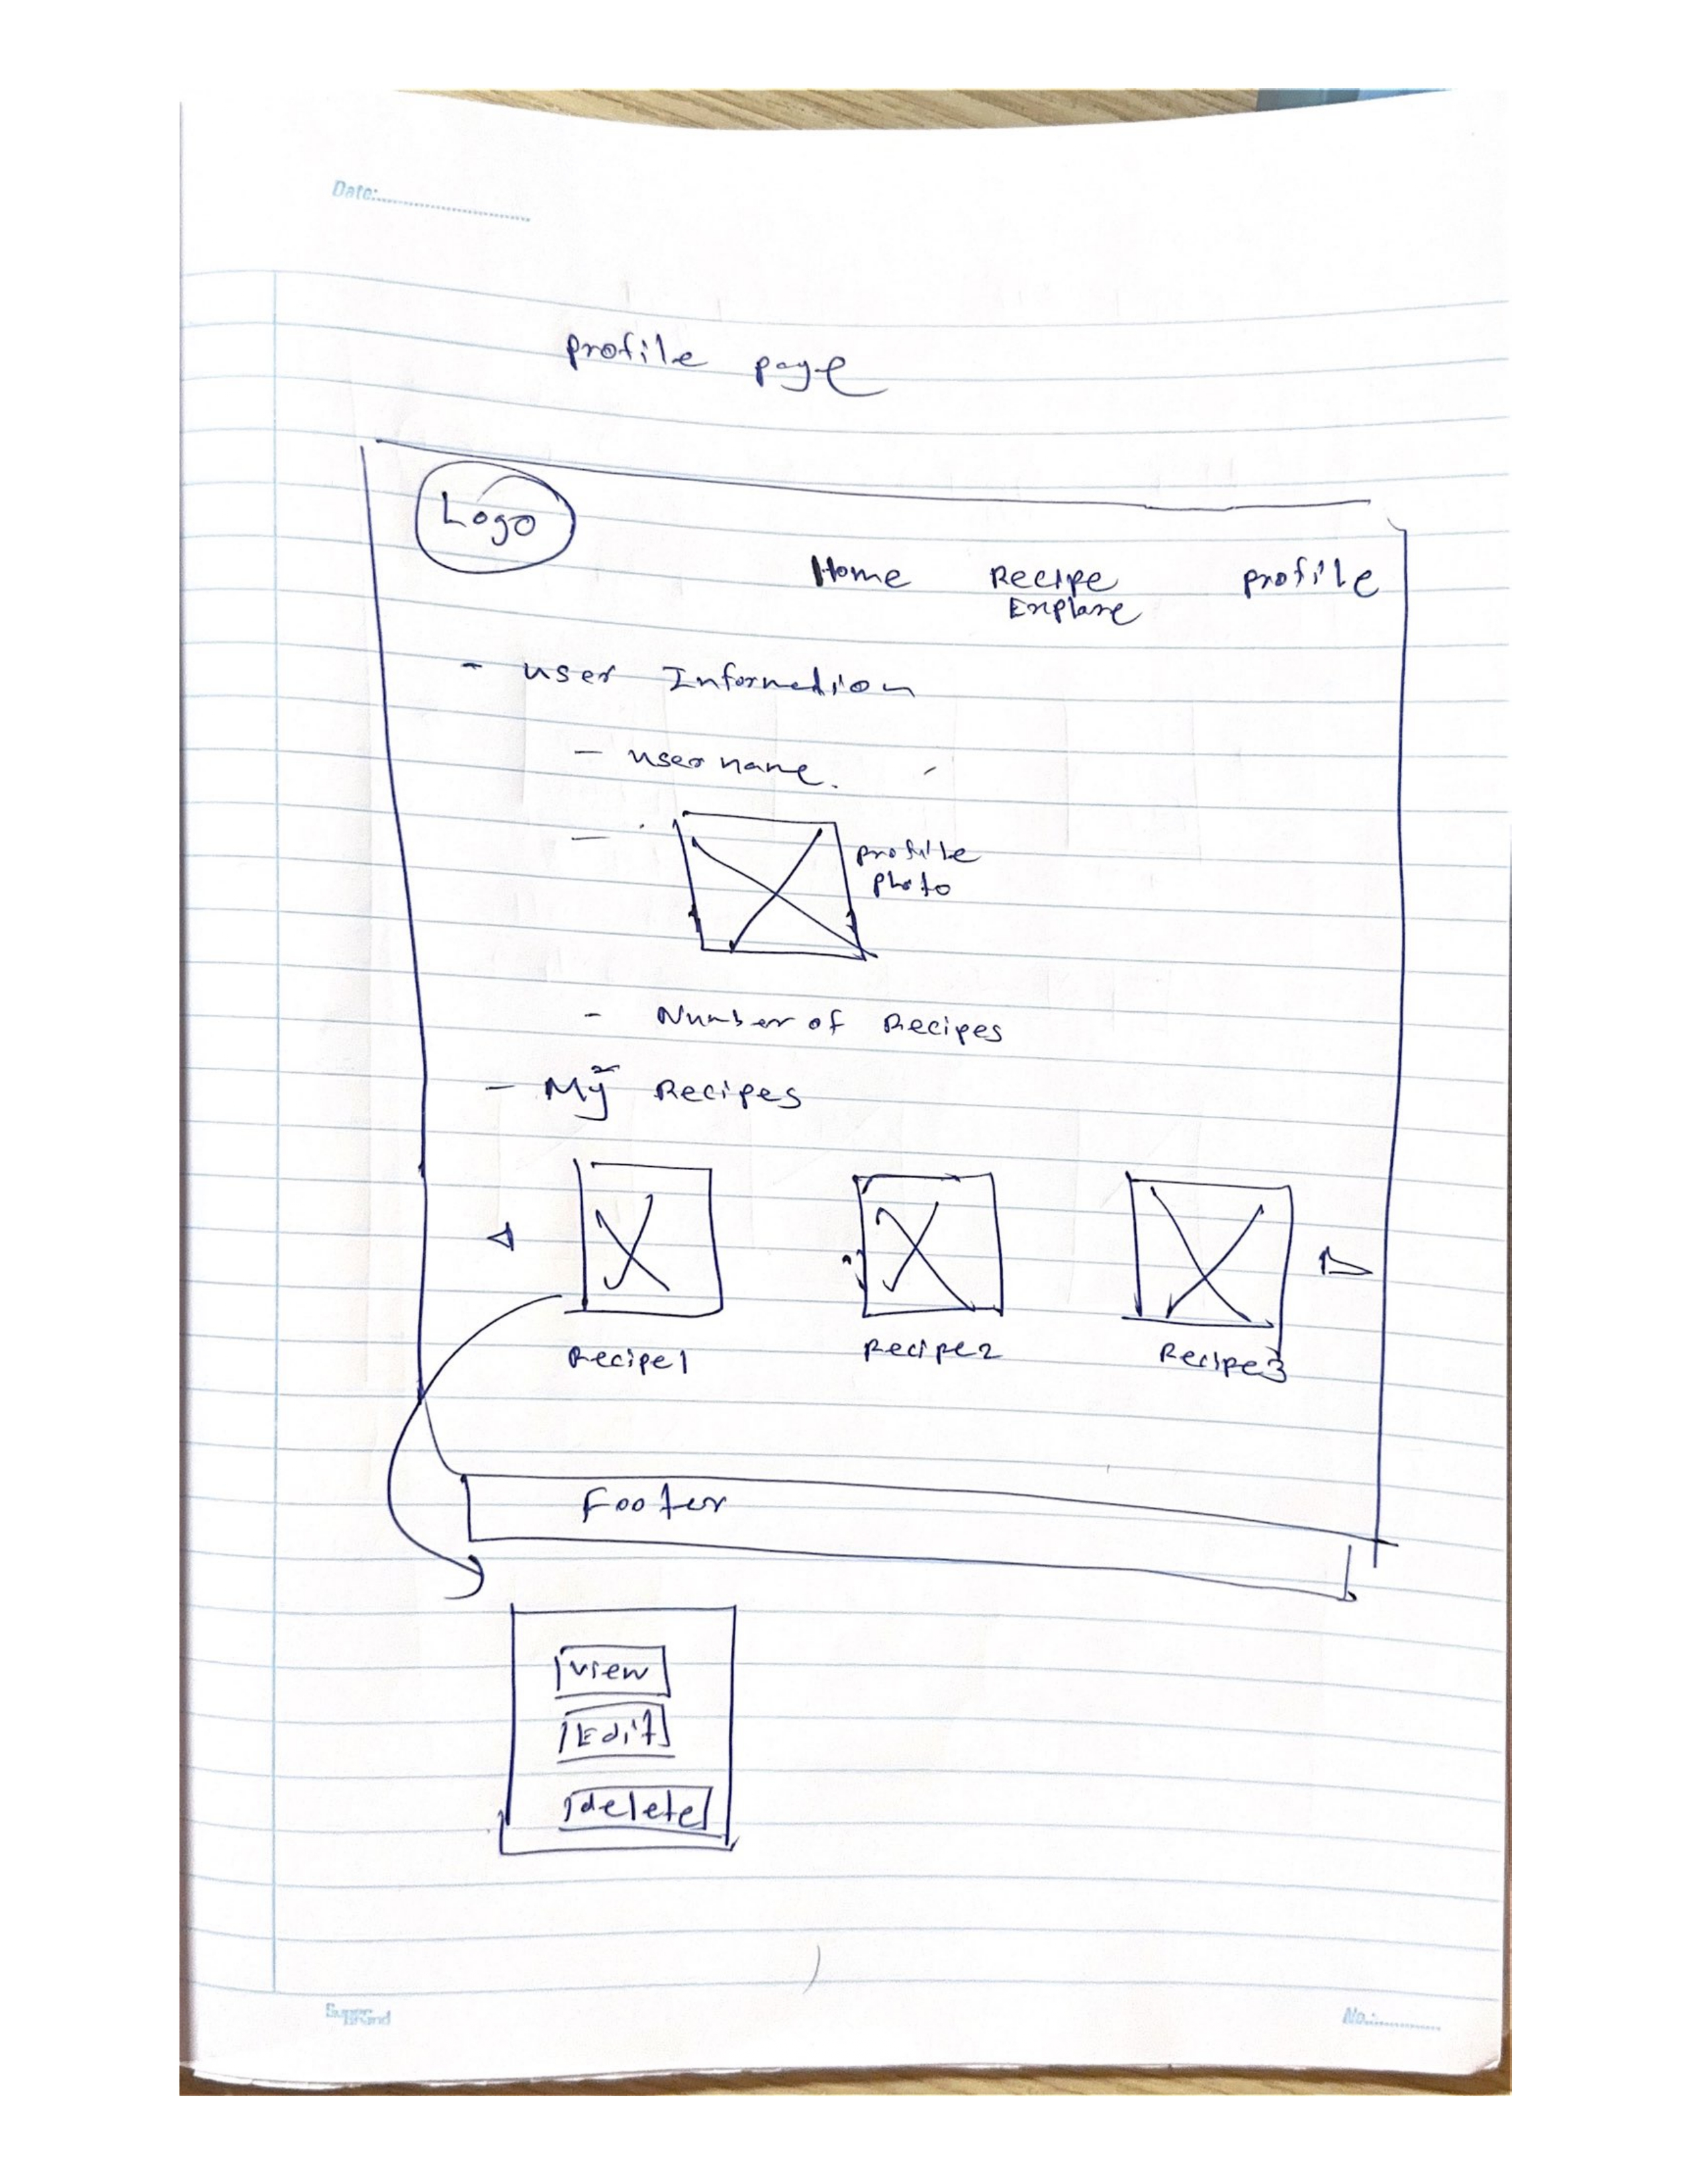 Date:
profile page
Logo
Home Recipe profile
Explore
- user Information
- user name.
- profile
photo
- Number of Recipes
- My Recipes
Recipe1 Recipe2 Recipe3
Footer
view
Edit
delete
Super
Brand
No.: